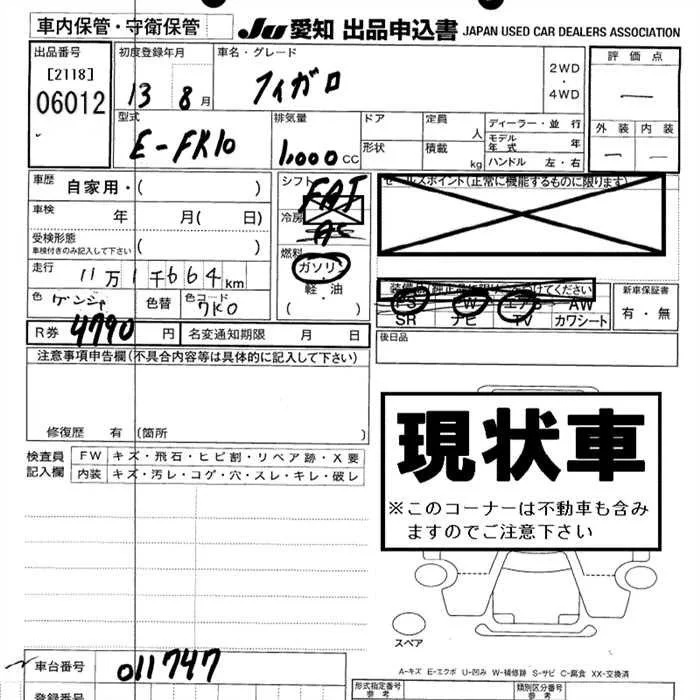 車内保管・守衛保管 Ju 愛知 出品申込書 JAPAN USED CAR DEALERS ASSOCIATION
出品番号 初度登録年月 車名・グレード 2WD ・ 4WD 評価点
[2118]
06012 13 8月 フィガロ —
型式 排気量 ドア 定員 人 ディーラー・並行 外装 内装
E-FK10 1,000CC 形状 積載 kg モデル年式 年 — —
ハンドル 左・右
車歴 自家用・( ) シフト FAT セールスポイント(正常に機能するものに限ります)
車検 年 月( 日) 冷房 AC
受検形態 車検付きのみ記入して下さい ( ) 燃料
走行 11万1千664km ガソリン・軽・油 ( )
色 ゲンジャ 色替 色コード 7K0
装備品(純正品に限り 付けてください 新車保証書
PS PW エアB AW 有・無
SR ナビ TV カワシート
R券 4790円 名変通知期限 月 日 後日品
注意事項申告欄(不具合内容等は具体的に記入して下さい)
現状車
※このコーナーは不動車も含み
ますのでご注意下さい
修復歴 有 (箇所 )
検査員記入欄 FW キズ・飛石・ヒビ割・リペア跡・X要
内装 キズ・汚レ・コゲ・穴・スレ・キレ・破レ
スペア
A-キズ E-エクボ U-凹み W-補修跡 S-サビ C-腐食 XX-交換済
車台番号 011747
登録番号 形式指定番号 参考 類別区分番号 参考